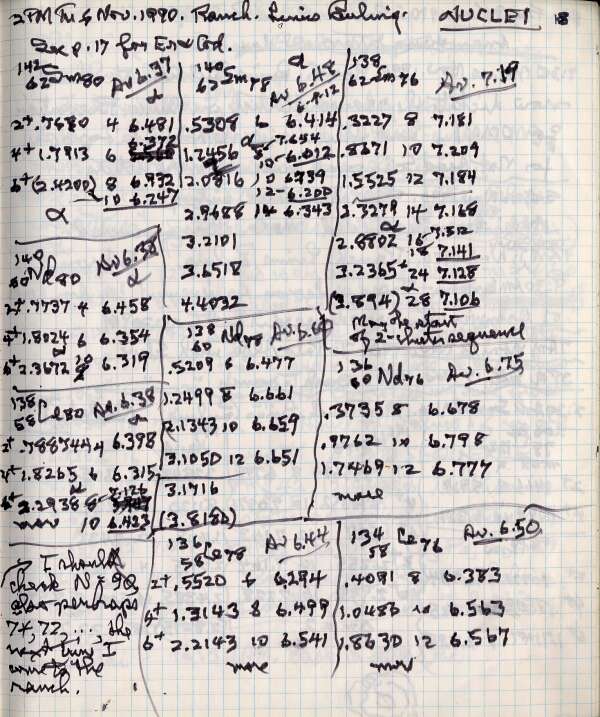 2 PM Tu 6 Nov. 1990. Ranch. Linus Pauling. NUCLEI 18
See p. 17 for Er & Gd.
142 62 Sm 80 Av 6.37
α
2+ .7680 4 6.481
4+ 1.7913 6 6.372
6+ (2.4200) 8 6.932
α 10 6.247
140 62 Sm 78 α Av 6.48
.5308 6 6.414
1.2456 α 8 7.654
10 6.612
2.0816 10 6.739
12 6.200
2.9688 14 6.343
3.2101
3.6518
4.4032
138 62 Sm 76 Av. 7.19
.3227 8 7.181
.8671 10 7.209
1.5525 12 7.184
2.3279 14 7.168
2.8802 16 7.512
18 7.141
3.2365 24 7.128
(3.894) 28 7.106
May be start
of 2-cluster sequence
140 60 Nd 80 Av 6.38
α
2+ .7737 4 6.458
4+ 1.8024 6 6.354
6+ 2.3672 10 6.319
138 60 Nd 78 Av. 6.60
.5209 6 6.477
1.2499 8 6.661
2.1343 10 6.659
3.1050 12 6.651
3.1716
(3.8186)
136 60 Nd 76 Av. 6.75
.3735 8 6.678
.9762 10 6.798
1.7469 12 6.777
more
138 58 Ce 80 Av 6.38
α
2+ .78874 4 6.398
4+ 1.8265 6 6.315
6+ 2.2938 8 7.126
more 10 6.423
136 58 Ce 78 Av 6.44
2+ .5520 6 6.294
4+ 1.3143 8 6.499
6+ 2.2143 10 6.541
more
134 58 Ce 76 Av. 6.50
.4091 8 6.383
1.0486 10 6.563
1.8630 12 6.567
more
→ I should
check N = 90,
also perhaps
74, 72, ..., the
next time I
come to the
ranch.